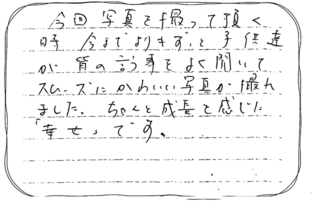 今回写真を撮って頂く
時 今までよりもずっと子供達
が皆の言う事をよく聞いて
スムーズにかわいい写真が撮れ
ました。ちゃんと成長を感じた
「幸せ」です。